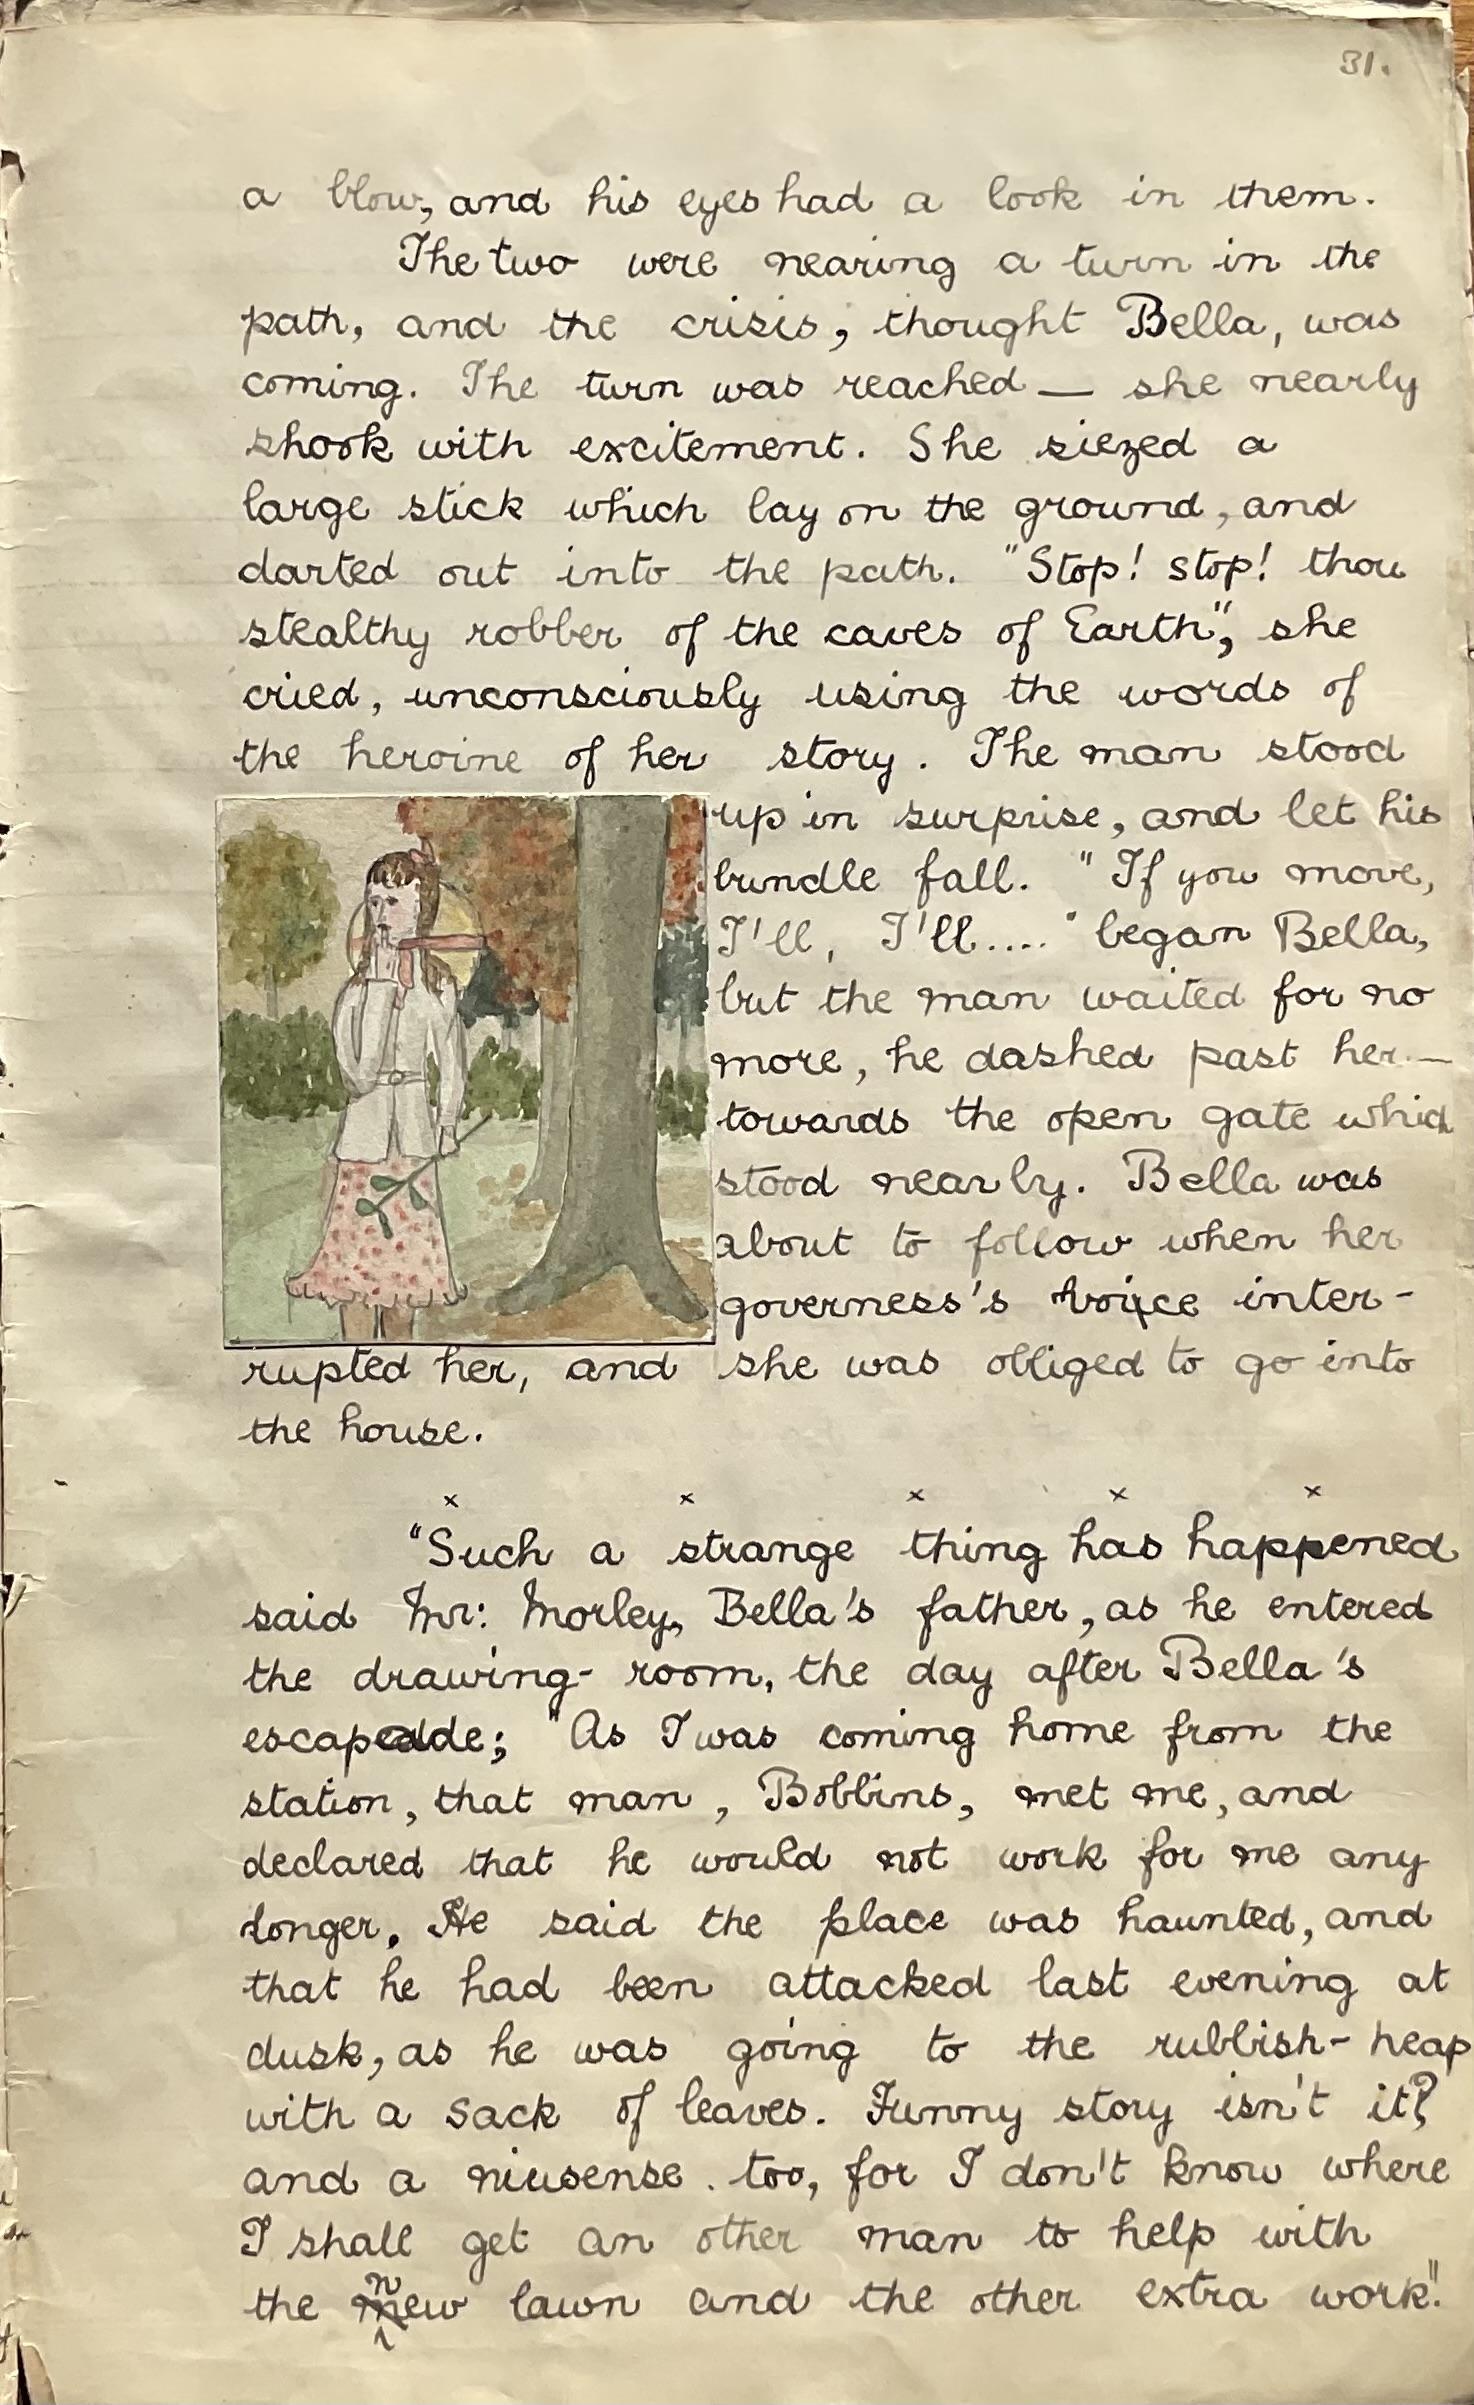 31.
a blow, and his eyes had a look in them.
The two were nearing a turn in the
path, and the crisis, thought Bella, was
coming. The turn was reached — she nearly
shook with excitement. She siezed a
large stick which lay on the ground, and
darted out into the path. "Stop! stop! thou
stealthy robber of the caves of Earth", she
cried, unconsciously using the words of
the heroine of her story. The man stood
up in surprise, and let his
bundle fall. "If you move,
I'll, I'll...." began Bella,
but the man waited for no
more, he dashed past her —
towards the open gate which
stood nearly. Bella was
about to follow when her
governess's voice inter-
rupted her, and she was obliged to go into
the house.
x x x x x
"Such a strange thing has happened
said Mr: Morley, Bella's father, as he entered
the drawing-room, the day after Bella's
escapade; "As I was coming home from the
station, that man, Bobbins, met me, and
declared that he would not work for me any
longer. He said the place was haunted, and
that he had been attacked last evening at
dusk, as he was going to the rubbish-heap
with a sack of leaves. Funny story isn't it?
and a niusense. too, for I don't know where
I shall get an other man to help with
the new lawn and the other extra work."